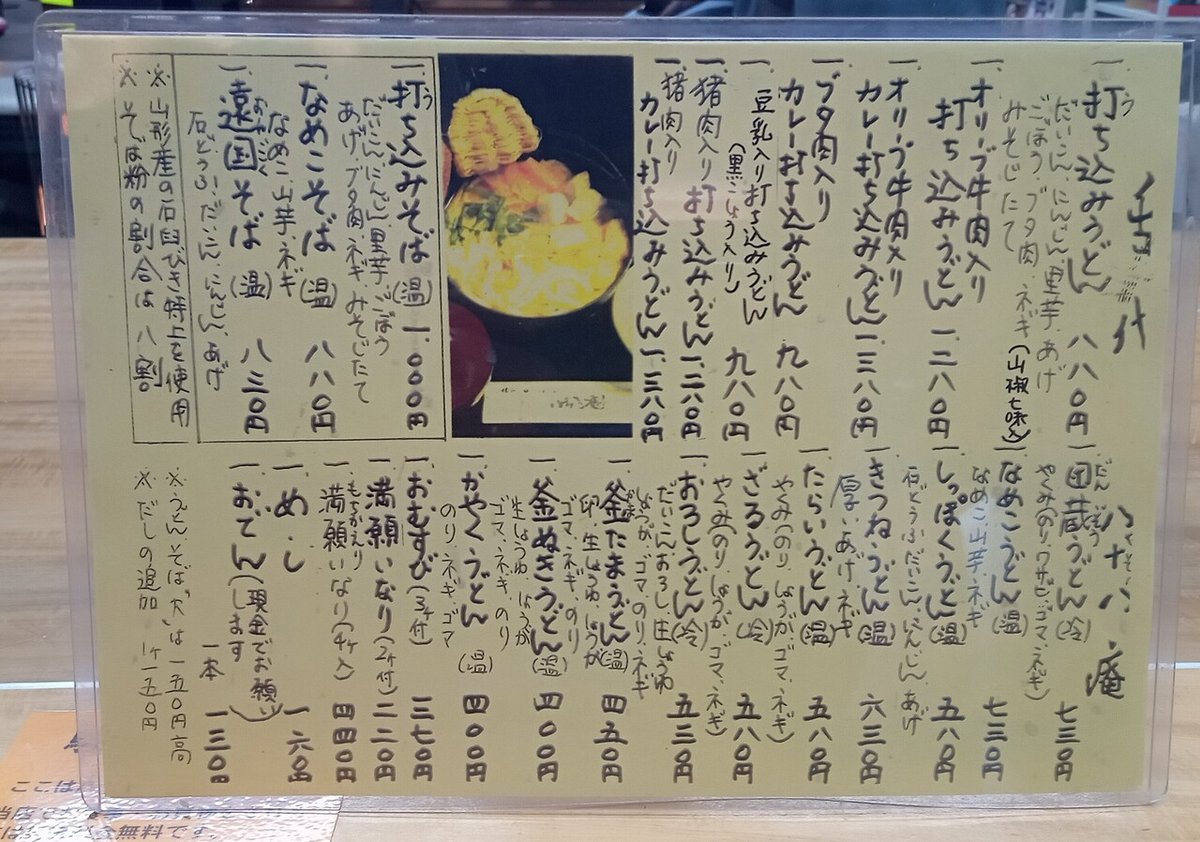 献代
八十八庵
はちそそう
一、打ち込みうどん 八八〇円
だいこん、にんじん、里芋、あげ
ごぼう、ブタ肉、ネギ(山椒七味入)
みそじたて
一、オリーブ牛肉入り
打ち込みうどん 一、二八〇円
オリーブ牛肉入り
カレー打ち込みうどん 一、三八〇円
一、ブタ肉入り
カレー打ち込みうどん 九八〇円
一、豆乳入り打ち込みうどん 九八〇円
(黒こしょう入り)
一、猪肉入り打ち込みうどん 一、二八〇円
一、猪肉入り
カレー打ち込みうどん 一、三八〇円
一、打ち込みそば(温) 一、〇〇〇円
だいこん、にんじん、里芋、ごぼう
あげ、ブタ肉、ネギ、みそじたて
一、なめこそば(温) 八八〇円
なめこ、山芋、ネギ
一、遠国そば(温) 八三〇円
石どうふ、だいこん、にんじん、あげ
※山形産の石臼びき特上を使用
※そば粉の割合は八割
一、団蔵うどん(冷) 七三〇円
だんぞう
やくみ(のり、ワサビ、ゴマ、ネギ)
一、なめこうどん(温) 七三〇円
なめこ、山芋、ネギ
一、しっぽくうどん(温) 五八〇円
石どうふ、だいこん、にんじん、あげ
一、きつねうどん(温) 六三〇円
厚いあげ、ネギ
一、たらいうどん(温) 五八〇円
やくみ(のり、しょうが、ゴマ、ネギ)
一、ざるうどん(冷) 五八〇円
やくみ(のり、しょうが、ゴマ、ネギ)
一、おろしうどん(冷) 五三〇円
だいこんおろし、生しょうゆ
しょうが、ゴマ、のり、ネギ
一、釜たまうどん(温) 四五〇円
卵、生しょうゆ、しょうが
ゴマ、ネギ、のり
一、釜ぬきうどん(温) 四〇〇円
生しょうゆ、しょうが
ゴマ、ネギ、のり
一、かやくうどん(温) 四〇〇円
のり、ネギ、ゴマ
一、おむすび(3ヶ付) 三七〇円
一、満願いなり(2ヶ付) 二二〇円
もちかえり
一、満願いなり(4ヶ入) 四四〇円
一、めし 一六〇円
一、おでん(現金でお願いします) 一本 一三〇円
※うどん、そば“大”は一五〇円高
※だしの追加 1ヶ一五〇円
ここは
無料です。